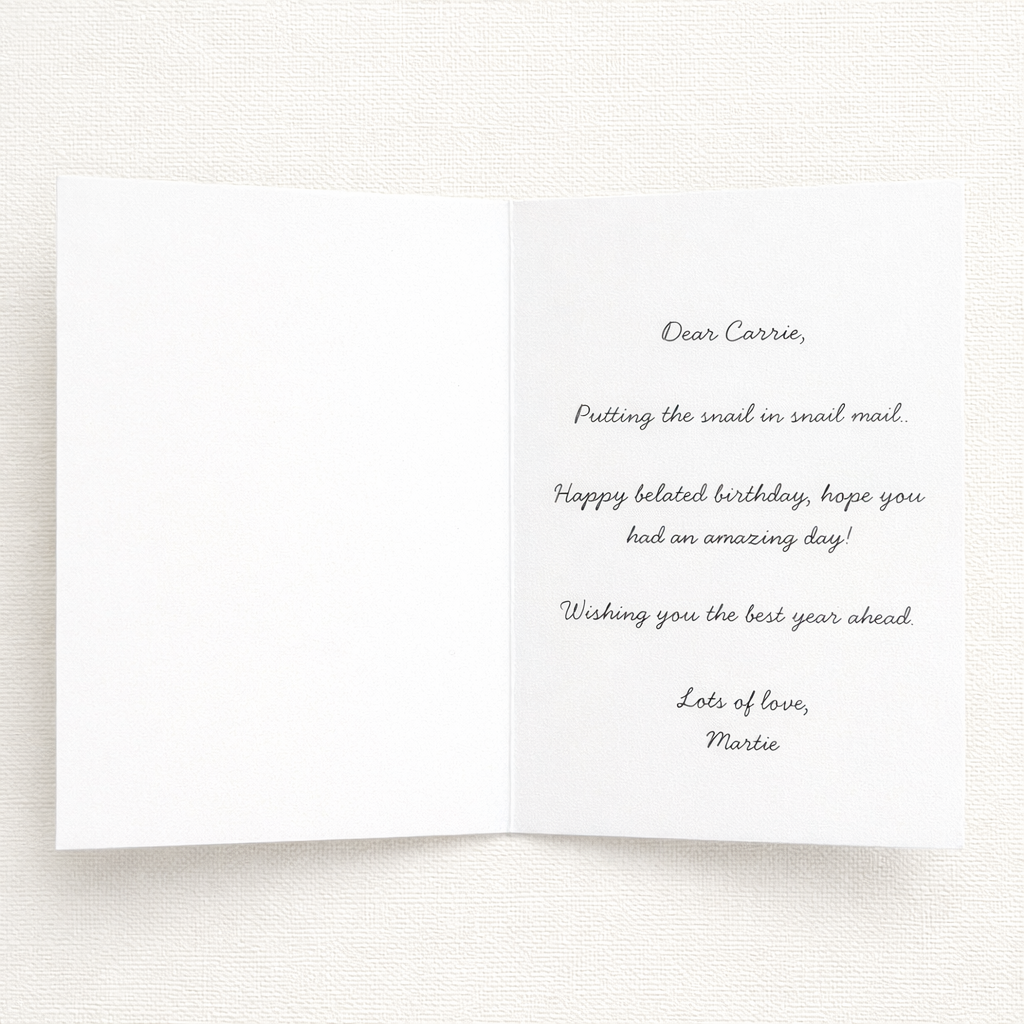 Dear Carrie,
Putting the snail in snail mail..
Happy belated birthday, hope you
had an amazing day!
Wishing you the best year ahead.
Lots of love,
Martie